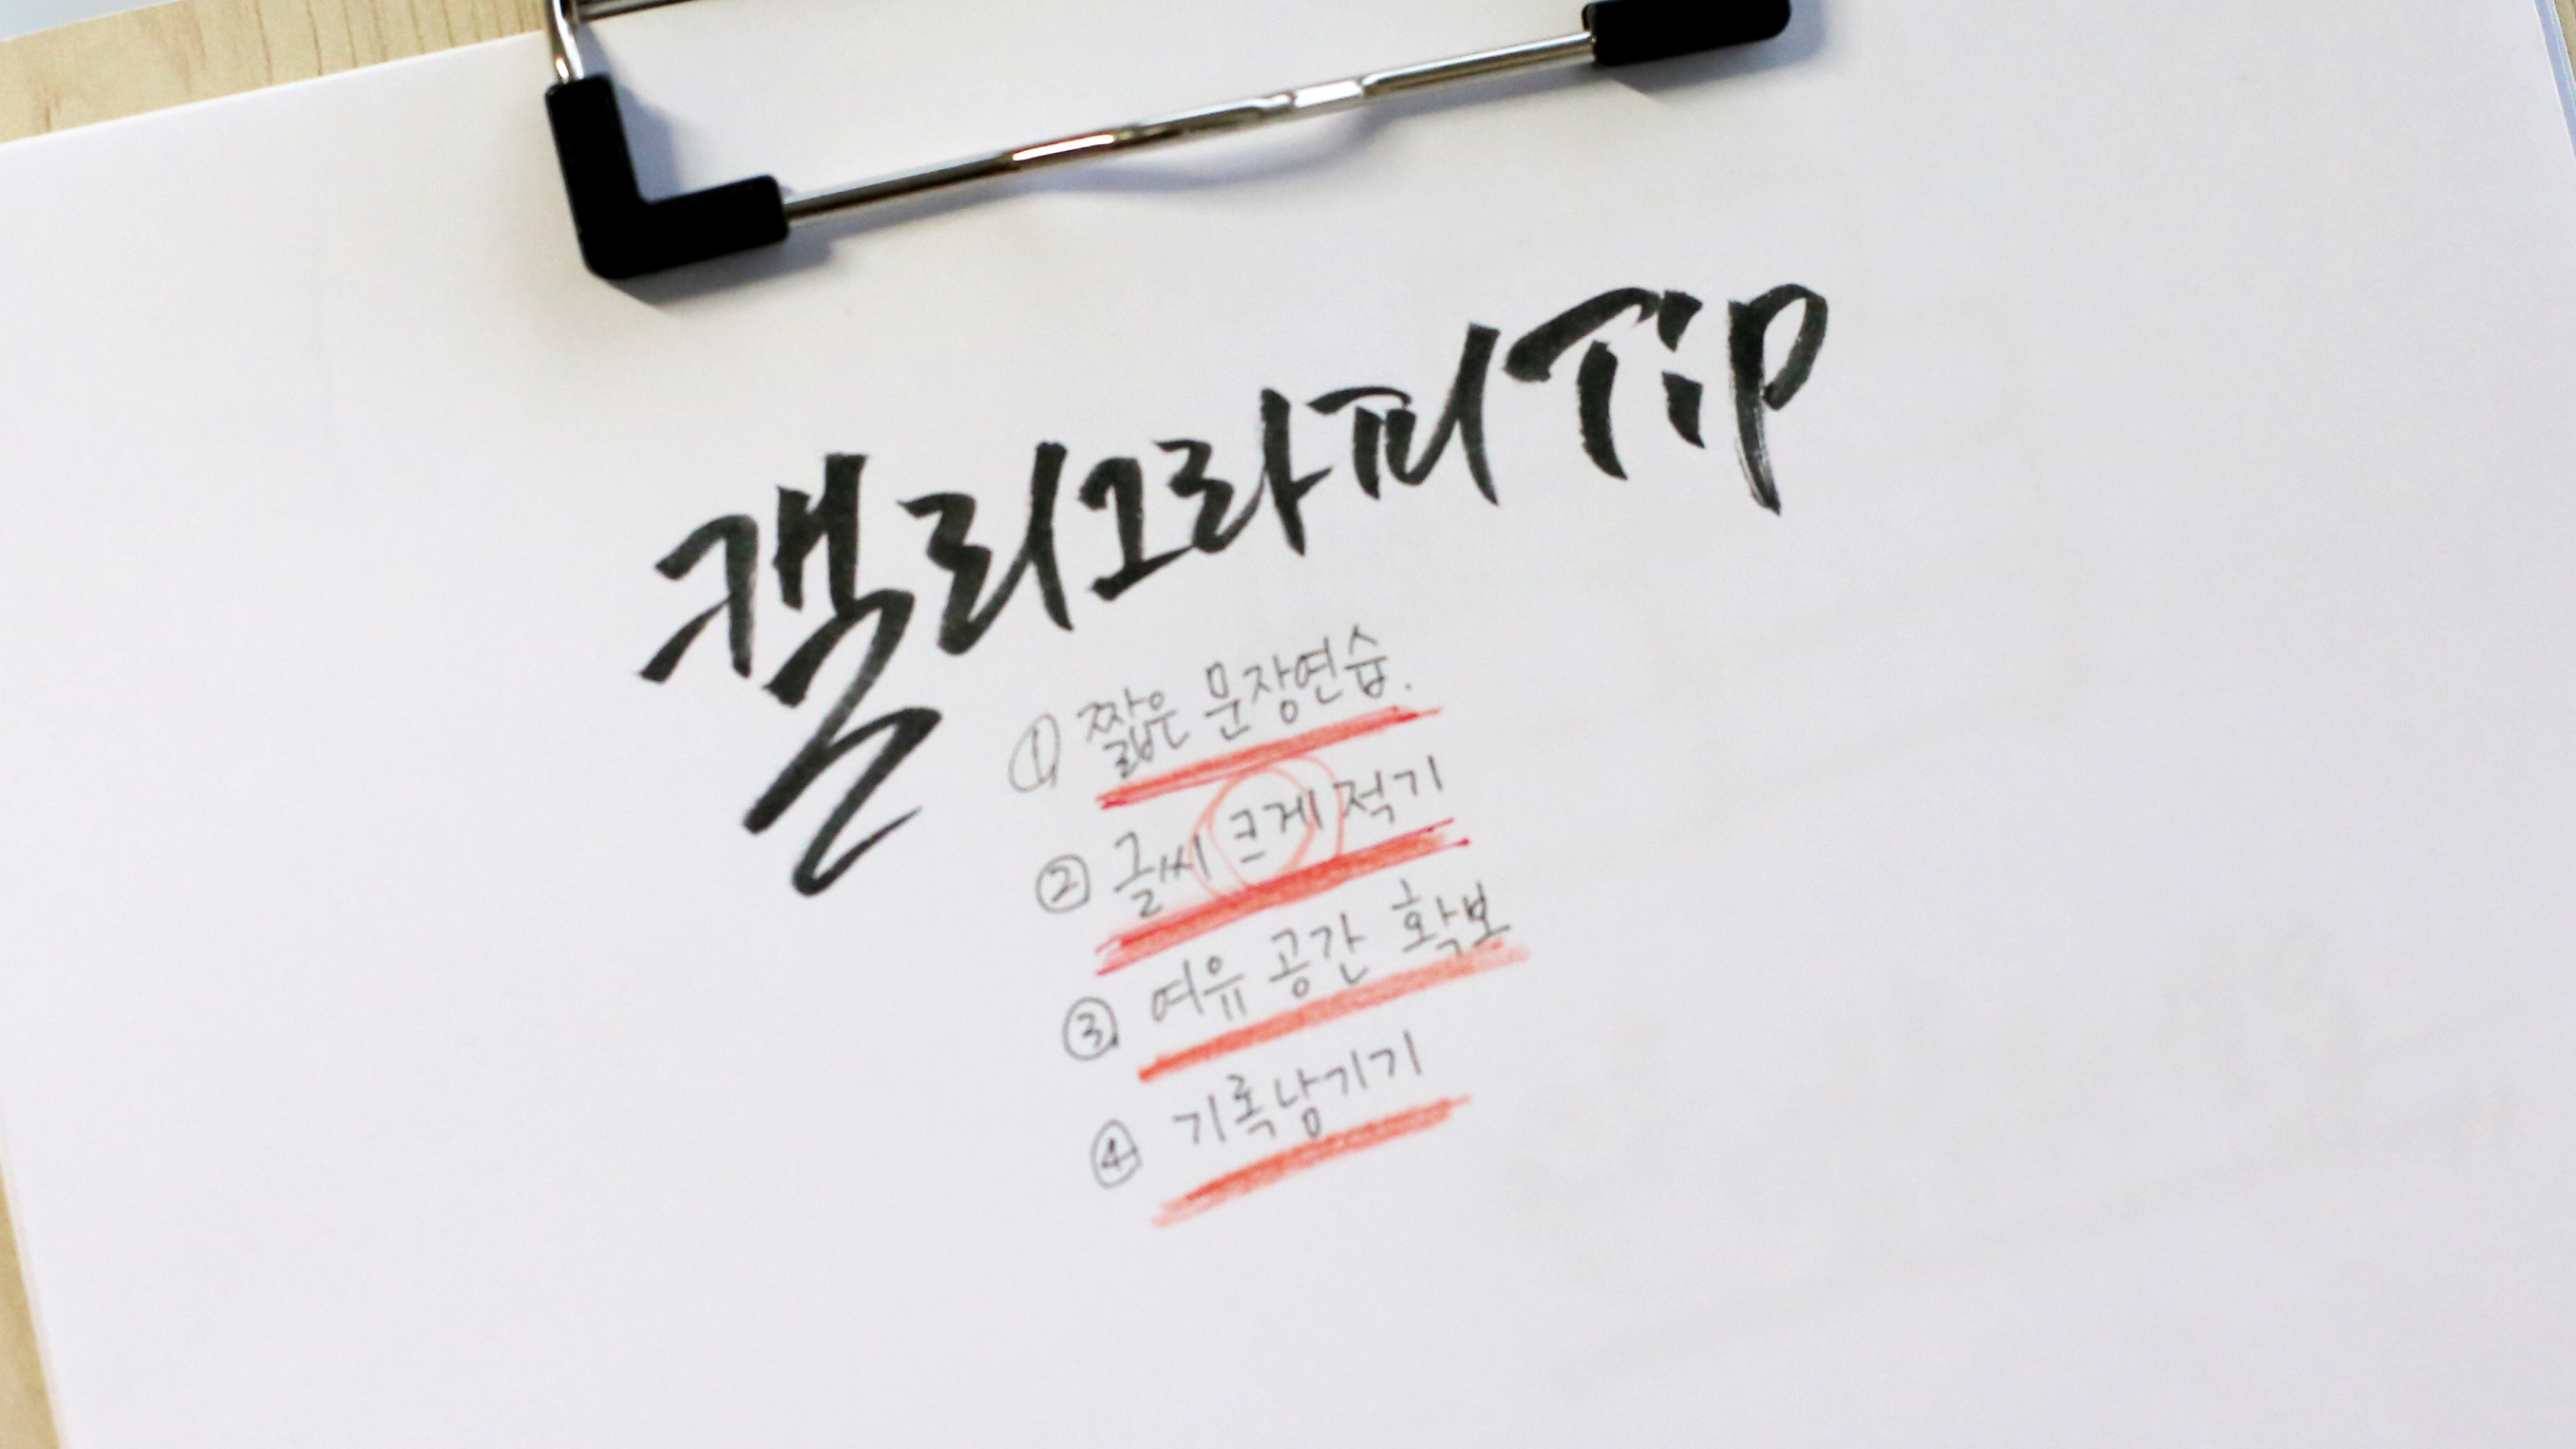 캘리그라피 Tip
① 짧은 문장연습.
② 글씨 크게 적기
③ 여유 공간 확보
④ 기록남기기